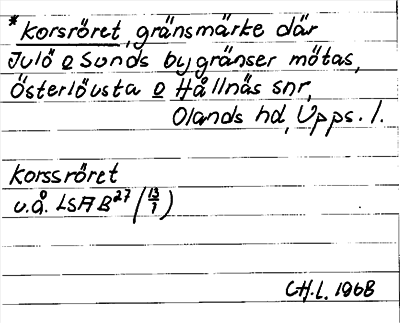 *Korsröret, gränsmärke där
Julö o Sunds bygränser mötas,
Österlövsta o Hållnäs snr,
Olands hd, Upps. l.
Korssröret
u.å. LSA B27 (13/7)
CH.L. 1968